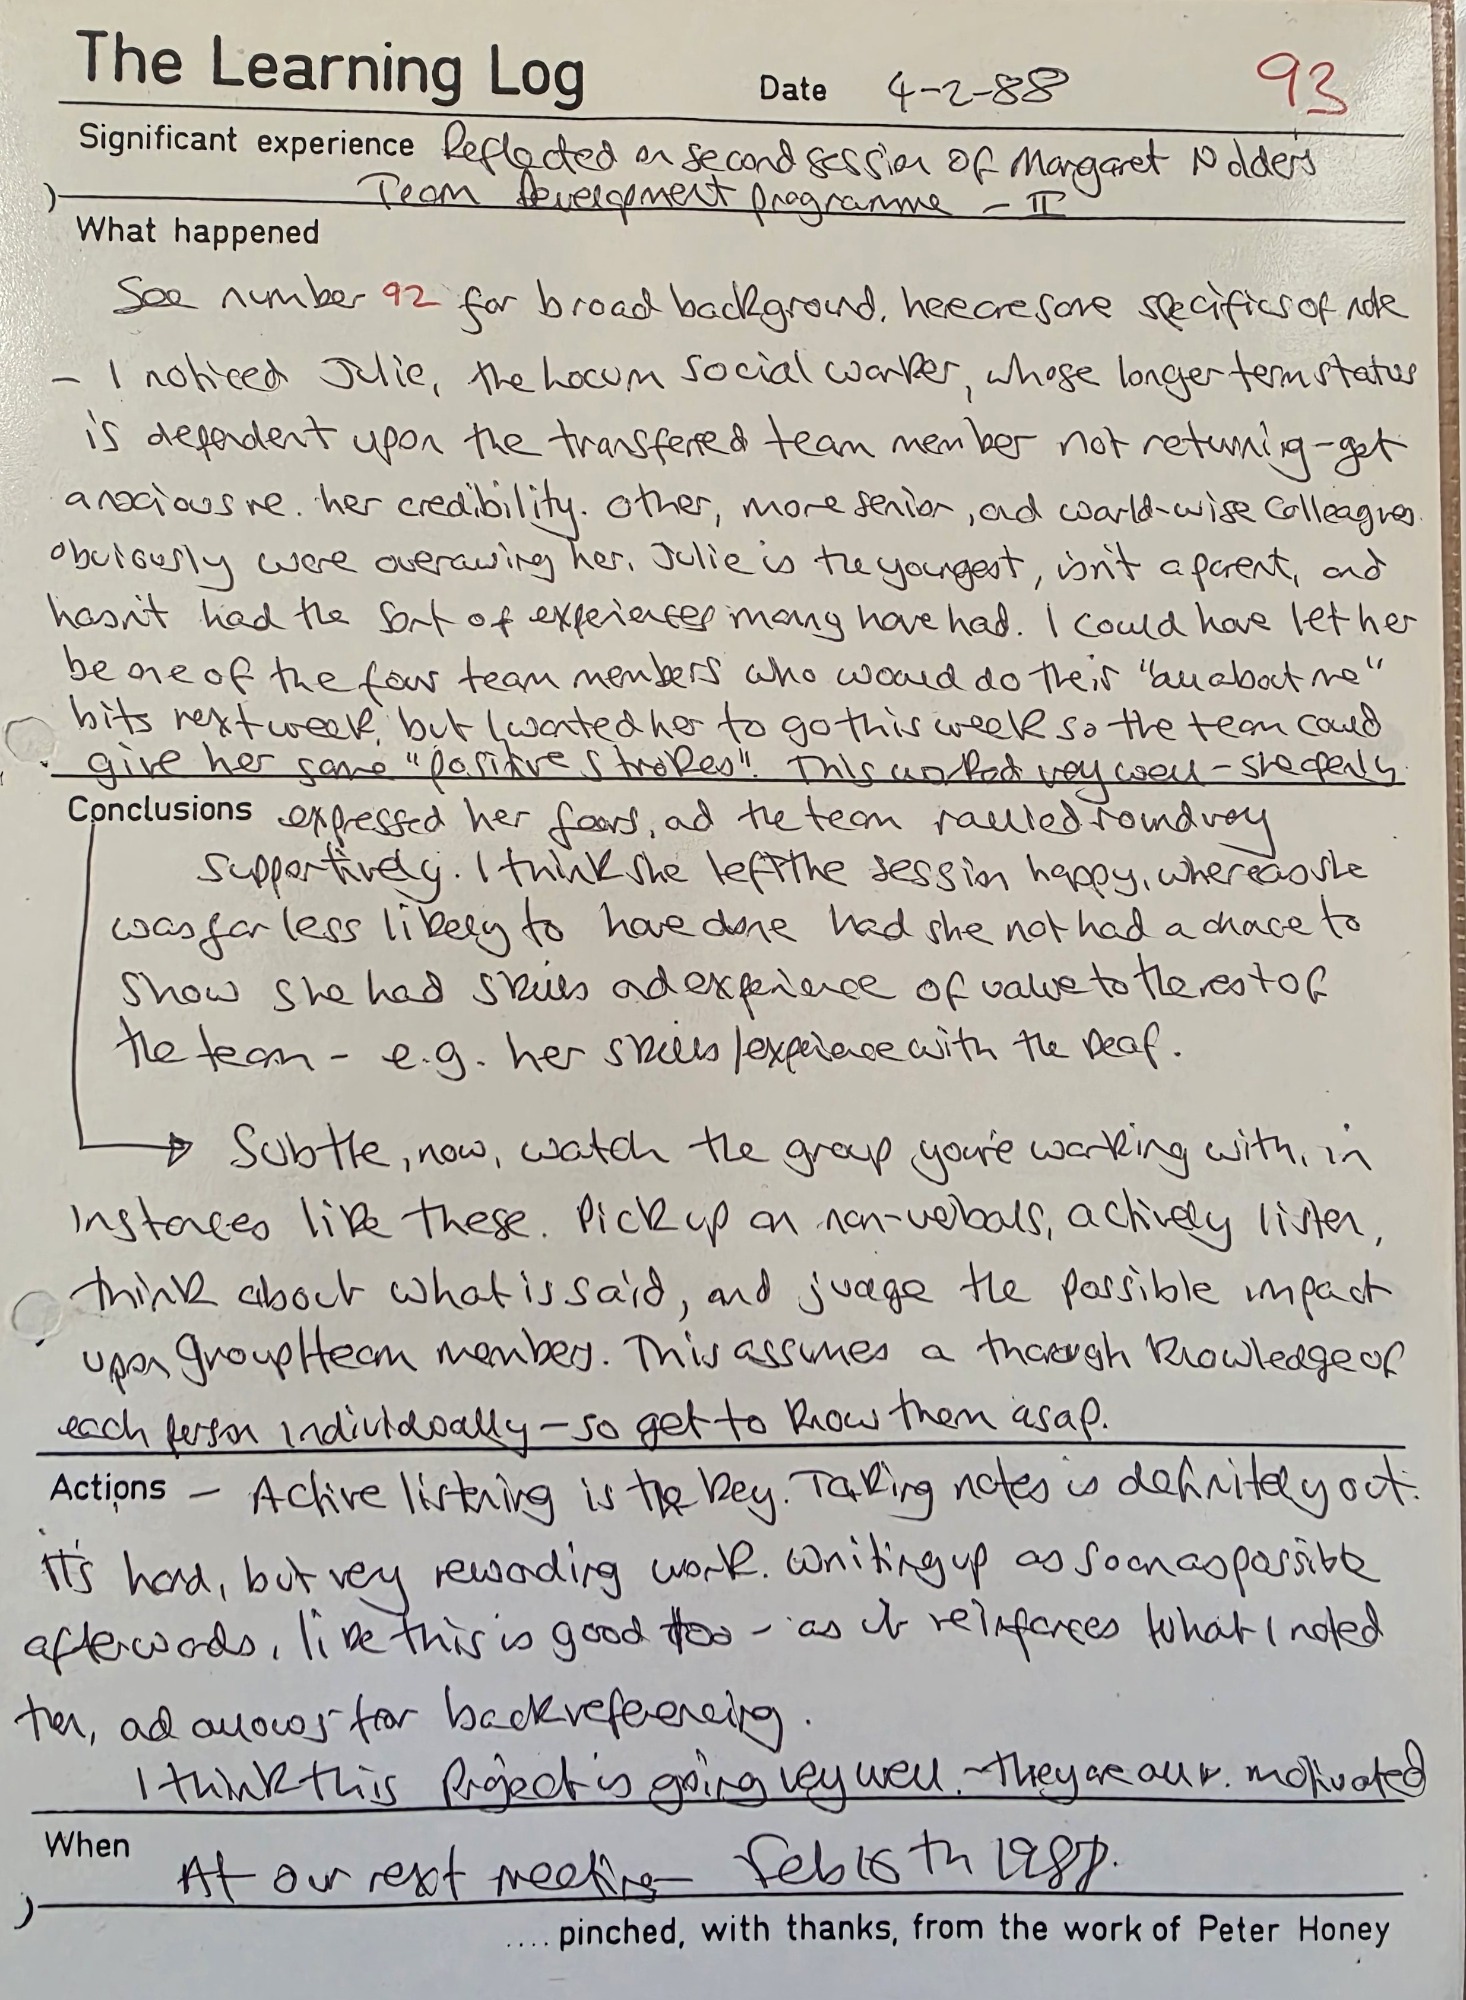 The Learning Log Date 4-2-88 93
Significant experience Reflected on second session of Margaret Nodder's
Team Development programme - II
What happened
See number 92 for broad background. here are some specifics of note
- I noticed Julie, the locum social worker, whose longer term status
is dependent upon the transferred team member not returning - get
anxious re. her credibility. Other, more senior, and world-wise colleagues
obviously were overawing her. Julie is the youngest, isn't a parent, and
hasn't had the sort of experiences many have had. I could have let her
be one of the four team members who would do their "all about me"
bits next week, but I wanted her to go this week so the team could
give her some "positive strokes". This worked very well - she openly
Conclusions expressed her fears, and the team rallied round very
supportively. I think she left the session happy, whereas she
was far less likely to have done had she not had a chance to
show she had skills and experience of value to the rest of
the team - e.g. her skills/experience with the Deaf.
→ Subtle, now, watch the group you're working with, in
instances like these. Pick up on non-verbals, actively listen,
think about what is said, and judge the possible impact
upon group/team members. This assumes a thorough knowledge of
each person individually - so get to know them asap.
Actions - Active listening is the key. Taking notes is definitely out.
it's hard, but very rewarding work. Writing up as soon as possible
afterwards, like this is good too - as it reinforces what I noted
then, and allows for back referencing.
I think this Project is going very well. - They are all v. motivated
When At our next meeting - Feb 16th 1988.
.... pinched, with thanks, from the work of Peter Honey